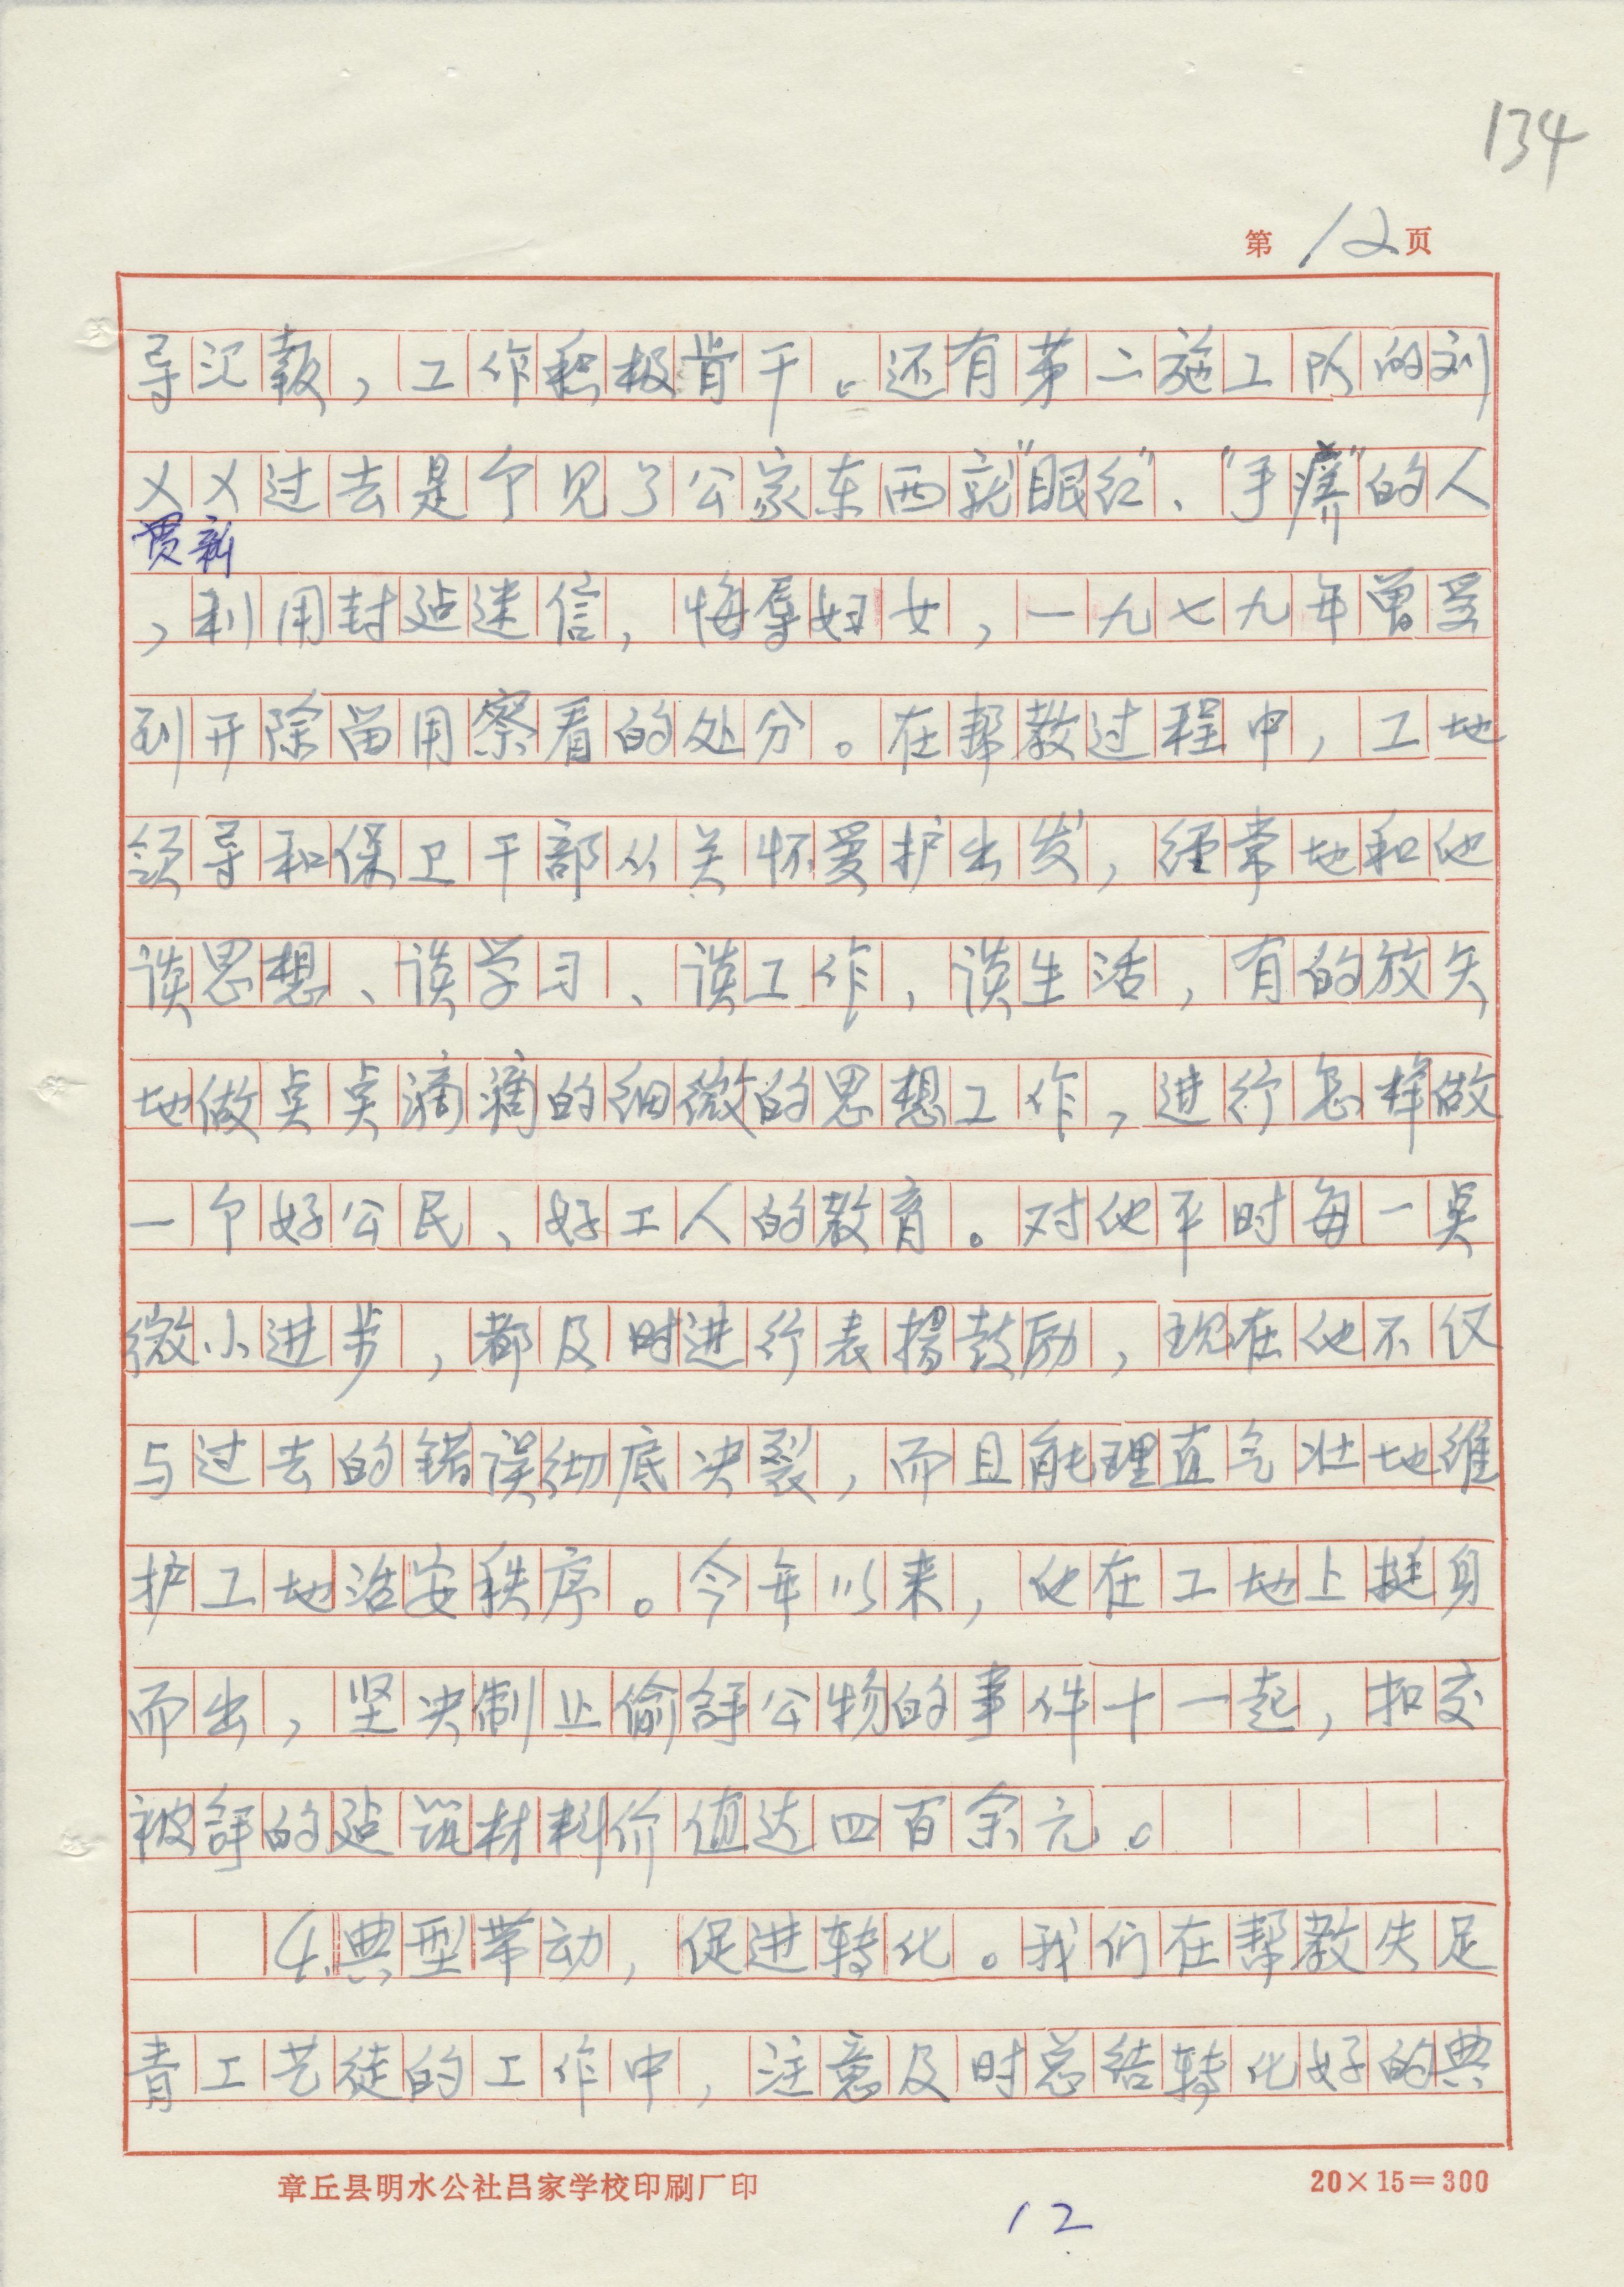 134
第12页
导汇報，工作积极肯干。还有第二施工队的刘
乂乂过去是个见了公家东西就"眼红"、"手痒"的人
贾新
，利用封建迷信，侮辱妇女，一九七九年曾受
到开除留用察看的处分。在帮教过程中，工地
领导和保卫干部从关怀爱护出发，经常地和他
谈思想、谈学习、谈工作，谈生活，有的放矢
地做点点滴滴的细微的思想工作，进行怎样做
一个好公民、好工人的教育。对他平时每一点
微小进步，都及时进行表揚鼓励，现在他不仅
与过去的错误彻底决裂，而且能理直气壮地维
护工地治安秩序。今年以来，他在工地上挺身
而出，坚决制止偷窃公物的事件十一起，扣交
被窃的建筑材料价值达四百余元。
4.典型带动，促进转化。我们在帮教失足
青工艺徒的工作中，注意及时总结转化好的典
章丘县明水公社吕家学校印刷厂印
20×15=300
12